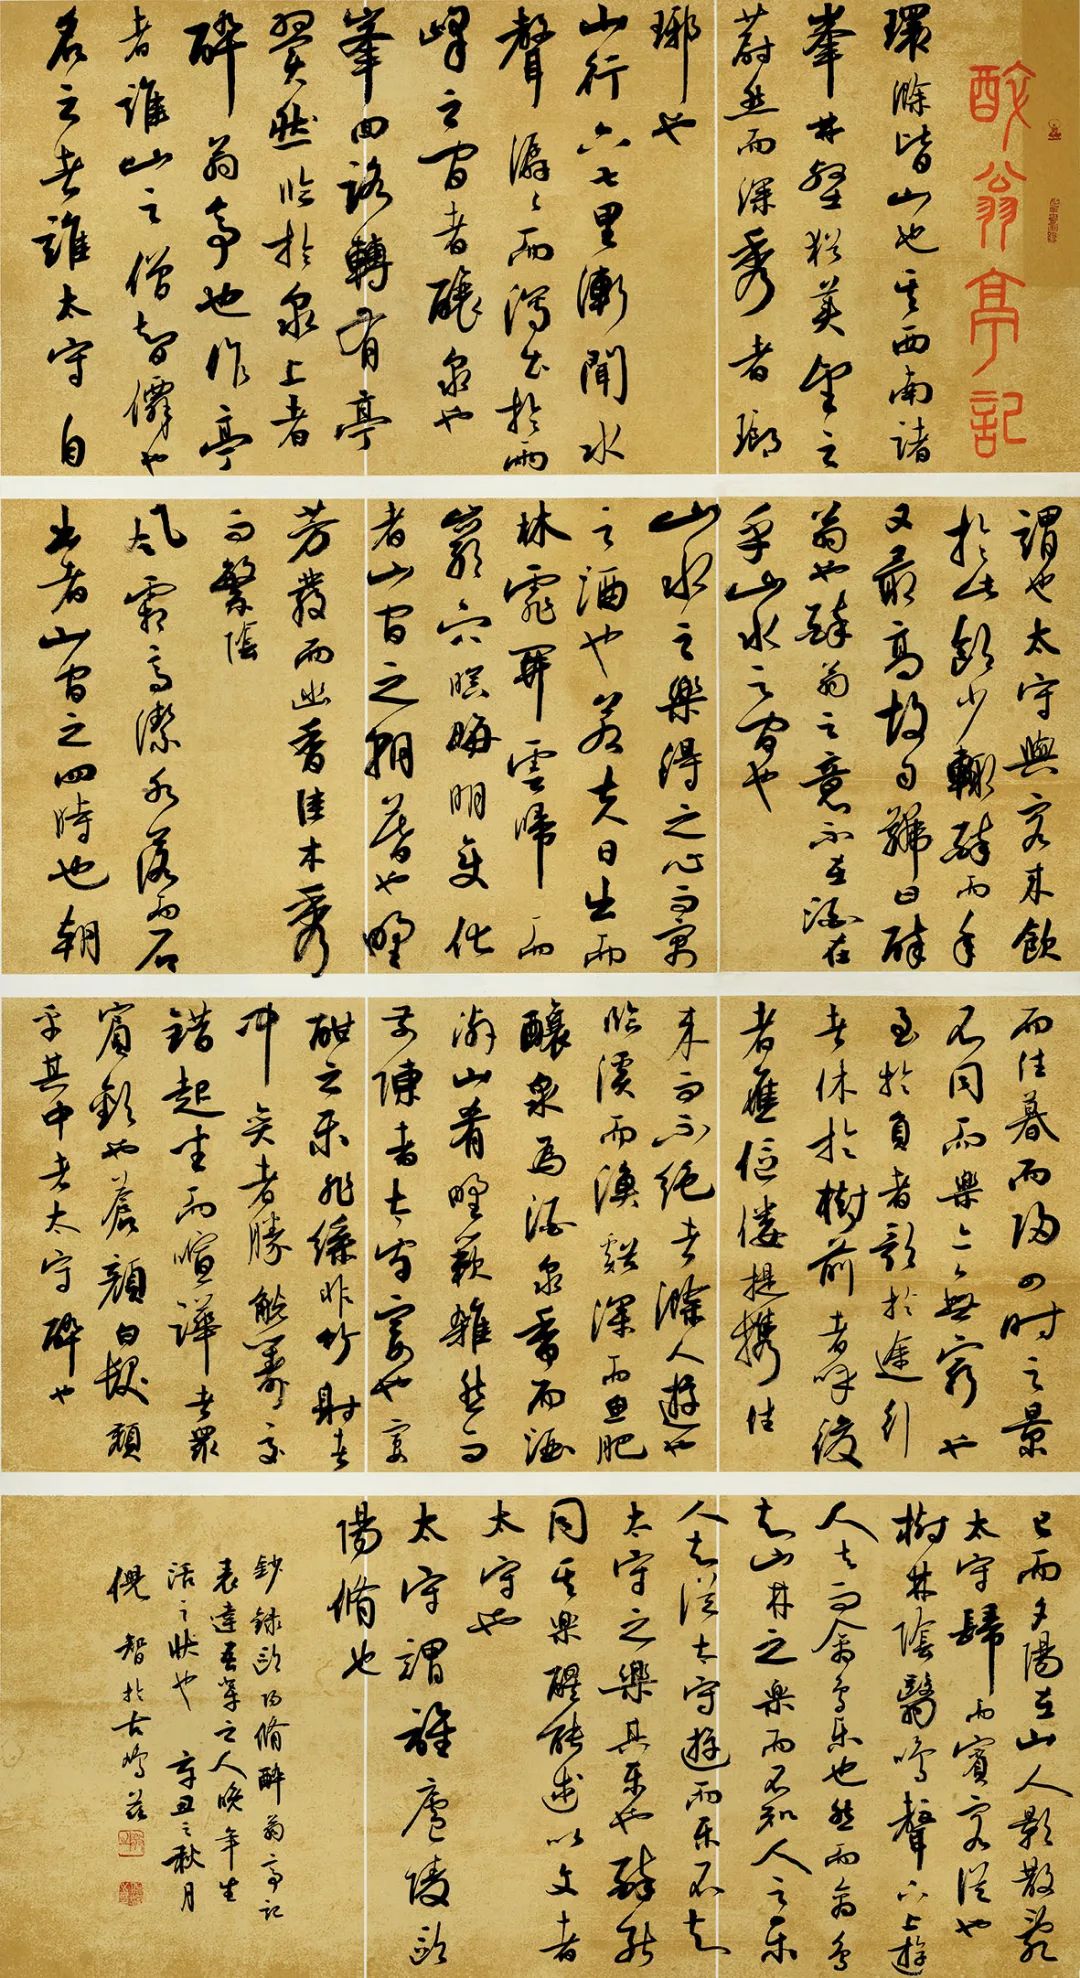 醉翁亭記
環滁皆山也其西南諸
峯林壑猶美望之
蔚然而深秀者瑯
琊也
山行六七里漸聞水
聲潺〻而瀉出於兩
峰之間者釀泉也
峯回路轉有亭
翼然臨於泉上者
醉翁亭也作亭
者誰山之僧智僊也
名之者誰太守自
謂也太守與客來飲
於此飲少輒醉而年
又最高故自號曰醉
翁也醉翁之意不在酒在
乎山水之間也
山水之樂得之心而寓
之酒也若夫日出而
林霏開雲歸而
巖穴暝晦明變化
者山間之朝暮也野
芳發而幽香佳木秀
而繁陰
風霜高潔水落而石
出者山間之四時也朝
而往暮而歸四時之景
不同而樂亦無窮也
至於負者歌於途行
者休於樹前者呼後
者應傴僂提攜往
來而不絕者滁人遊也
臨溪而漁谿深而魚肥
釀泉為酒泉香而酒
洌山肴野蔌雜然而
前陳者太守宴也宴
酣之樂非絲非竹射者
中奕者勝觥籌交
錯起坐而喧譁者眾
賓歡也蒼顏白髮頹
乎其中者太守醉也
已而夕陽在山人影散亂
太守歸而賓客從也
樹林陰翳鳴聲上下遊
人去而禽鳥樂也然而禽鳥
知山林之樂而不知人之樂
人知從太守遊而樂不知
太守之樂其樂也醉能
同其樂醒能述以文者
太守也
太守謂誰廬陵歐
陽脩也
鈔錄歐陽脩醉翁亭記
表達吾輩之人晚年生
活之狀也 辛丑之秋月
倪智於古鳩茲